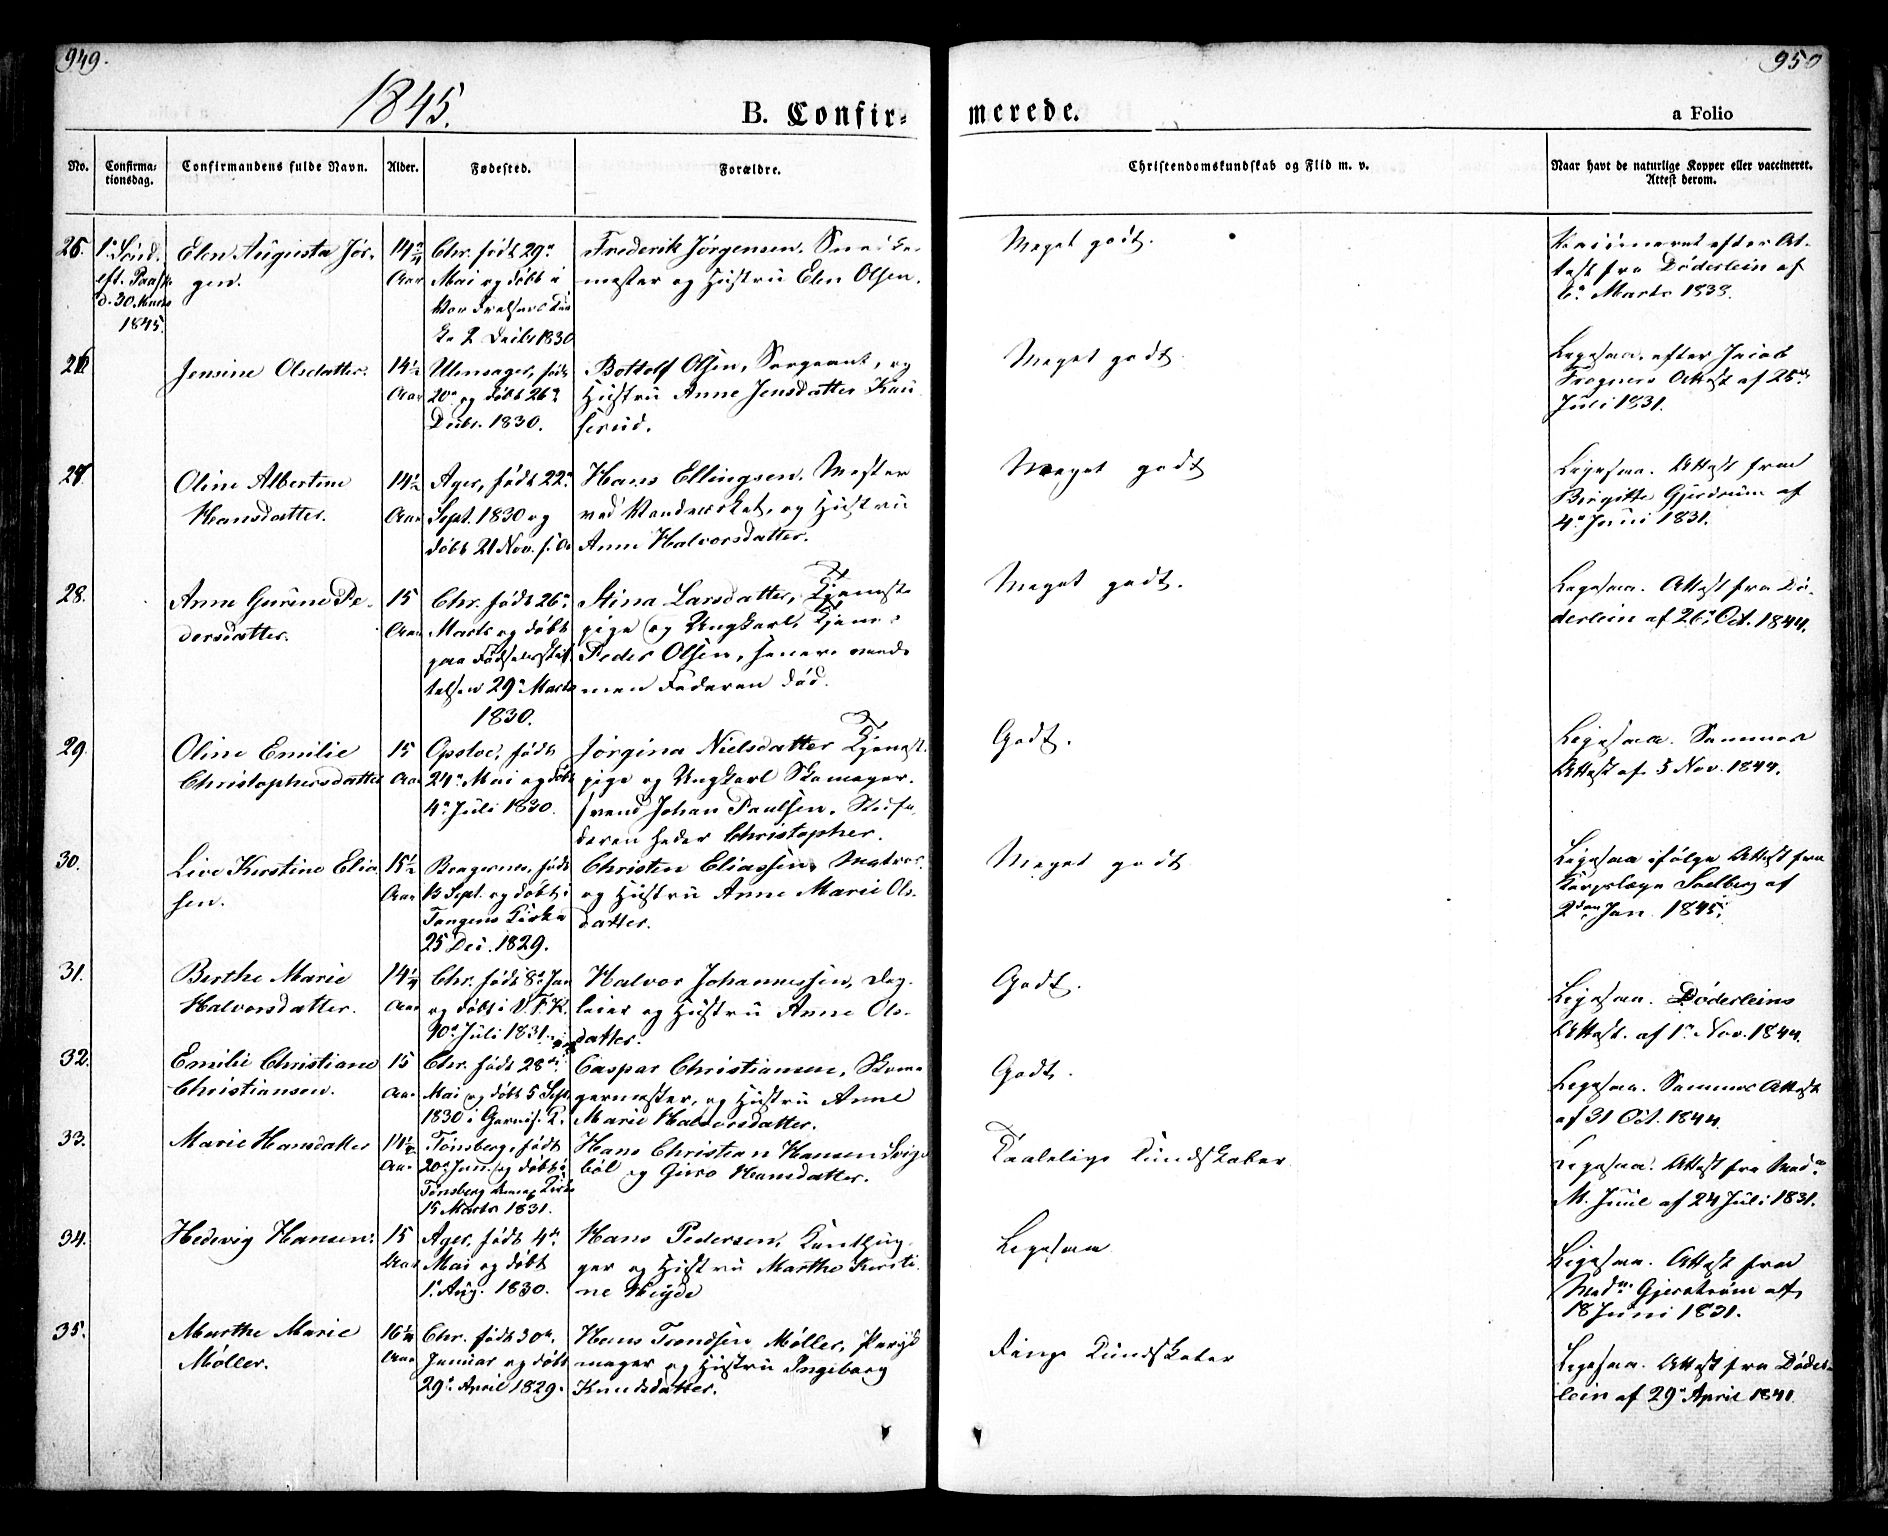 949.
950
1845.
B. Confir-
merede.
a Folio
No.
Confirma-
tionsdag.
Confirmandens fulde Navn.
Alder.
Fødested.
Forældre.
Christendomskundskab og Flid m. v.
Naar havt de naturlige Kopper eller vaccineret.
Attest derom.
25.
1ᵉ Sönd.
eft. Paaske
d. 30 Marts
1845.
Elen Augusta Jör-
gen.
14¾
Aar
Chr. født 29ᵈᵉ
Mai og døbt i
Vor Frelsers Kir
ke 2 Decbr 1830
Frederik Jörgensen, Snedker-
mester og Hustru Elen Olsen.
Meget godt.
Vaccineret efter At-
test fra Döderlein af
6ᵗᵉ Marts 1838.
26.
Jensine Olsdatter.
14½
Aar
Ullensager, født
20ᵈᵉ og døbt 26ᵈᵉ
Decbr. 1830.
Bottolf Olsen, Sergeant, og
Hustru Anne Jensdatter Kau
serud.
Meget godt
Ligesaa. efter Jacob
Frogners Attest af 25ᵈᵉ
Juli 1831.
27.
Oline Albertine
Hansdatter.
14½
Aar
Ager, født 22ᵈᵉ
Sept. 1830 og
døbt 21 Nov. s. A.
Hans Ellingsen, Mester
ved Vandværket, og Hustru
Anne Halvorsdatter.
Meget godt
Ligesaa. Attest fra
Birgitte Gjerdrum af
4ᵈᵉ Juni 1831.
28.
Anne Gurine Pe-
dersdatter.
15
Aar
Chr. født 26ᵈᵉ
Marts og døbt
paa Fødselsstif
telsen 29ᵈᵉ Marts
1830.
Stina Larsdatter, Tjeneste
pige og Ungkarl, Tjener
Peder Olsen, senere meldt
men Faderen død.
Meget godt.
Ligesaa. Attest fra Dö-
derlein af 26ᵈᵉ Oct. 1844.
29.
Oline Emilie
Christophersdatter
15
Aar
Opsloe, født
24ᵈᵉ Mai og døbt
4ᵈᵉ Juli 1830.
Jörgina Nielsdatter Tjeneste
pige og Ungkarl Skomager-
svend Johan Paulsen. Stedfa-
deren heder Christopher.
Godt.
Ligesaa. Sammes
Attest af 5 Nov. 1844.
30.
Live Kirstine Elia
sen.
15½
Aar
Bragernes, født
13 Sept. og døbt i
Tangens Kirke
25 Dec. 1829.
Christen Eliassen, Matros
og Hustru Anne Marie Ols-
datter.
Meget godt
Ligesaa ifølge Attest fra
Korpslæge Soelberg af
2ᵈᵉⁿ Jan 1845.
31.
Berthe Marie
Halvorsdatter.
14¼
Aar
Chr. født 8ᵈᵉ Jan
og døbt i V. F. K.
10ᵈᵉ Juli 1831.
Halvor Johannessen, Dag-
leier og Hustru Anne Ols-
datter.
Godt.
Ligesaa. Döderleins
Attest. af 1ᵗᵉ Nov. 1844.
32.
Emilie Christiane
Christiansen.
15
Aar
Chr. født 28ᵈᵉ
Mai og døbt 5 Sept.
1830 i Garnis. K.
Caspar Christiansen, Skoma
germester, og Hustru Anne
Marie Halvorsdatter.
Godt.
Ligesaa. Sammes Attest
af 31 Oct. 1844.
33.
Marie Hansdatter
14½
Aar
Tönsberg, født
20ᵈᵉ Jan. og døbt i
Tönsberg Kirke
15 Marts 1831.
Hans Christian Hansen Svige
böl og Guro Hansdatter.
Taalelige Kundskaber
Ligesaa. Attest fra Mad.
M. Juul af 24 Juli 1831.
34.
Hedevig Hansen.
15
Aar
Ager, født 4ᵈᵉ
Mai og døbt
1ᵉ Aug. 1830.
Hans Pedersen, Kandthug-
ger og Hustru Marthe Kirsti-
ne Heyde
Ligesaa
Ligesaa. Attest fra
Mad. Gjerdrum af
18 Juni 1831.
35.
Marthe Marie
Möller.
16¼
Aar
Chr. født 30ᵗᵉ
Januar og døbt
29ᵈᵉ April 1829.
Hans Trondsen Möller, Paryk
mager og Hustru Ingeborg
Knudsdatter.
Ringe Kundskaber
Ligesaa. Attest fra Döder-
lein af 29ᵈᵉ April 1841.